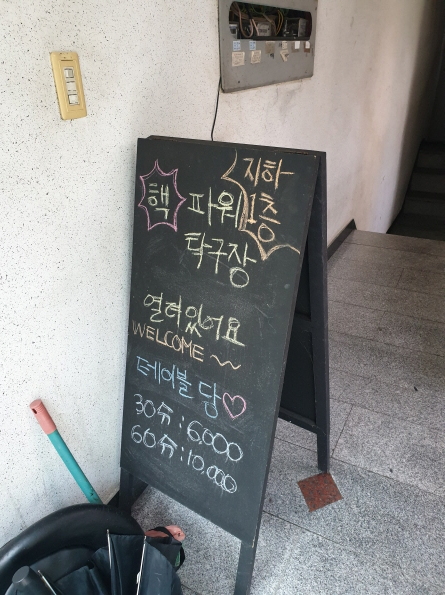 지하
1층
핵 파워
탁구장
열려있어요
WELCOME ~
테이블 당♡
30分 : 6,000
60分 : 10,000